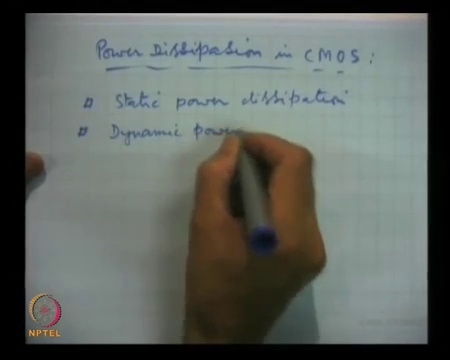 Power Dissipation in CMOS :
Static power dissipation
Dynamic power
NPTEL